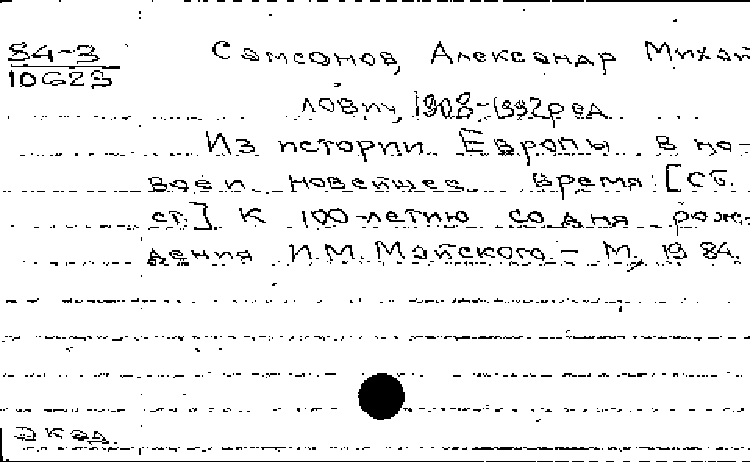 84-3
10623
Самсонов, Александр Михай
лович, 1908-1992 ред
Из истории Европы в но-
вое и новейшее время: [Сб.
ст.] К 100-летию со дня рож-
дения И.М. Майского - М., 1984.
экад.